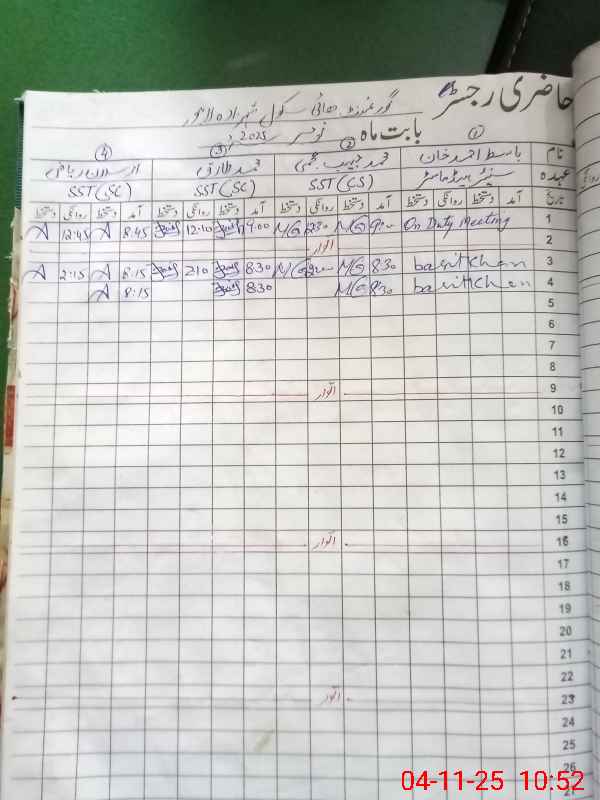 حاضری رجسٹر
گورنمنٹ ہائی سکول شہزادہ لاہور
بابت ماہ نومبر 2025
① ② ③ ④
نام باسط احمد خان محمد حبیب محمد طارق
عہدہ سینئر ہیڈ ماسٹر SST (CS) SST (SC) SST (SC)
تاریخ آمد دستخط روانگی دستخط آمد دستخط روانگی دستخط آمد دستخط روانگی دستخط آمد دستخط روانگی دستخط
1 On Duty Meeting MG 9:00 12:10 8:45 A 12:45 A
2 اتوار
3 basitkhan 8:30 MG 8:30 2:10 8:15 A 2:15 A
4 basitkhan 8:30 MG 8:30 8:15 A
5
6
7
8
9 اتوار
10
11
12
13
14
15
16 اتوار
17
18
19
20
21
22
23 اتوار
24
25
26
27
04-11-25 10:52